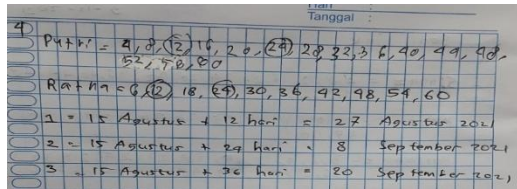 Hari
Tanggal :
4
Putri = 4, 8, 12, 16, 20, 24, 28, 32, 36, 40, 44, 48,
52, 58, 60
Ratna = 6, 12, 18, 24, 30, 36, 42, 48, 54, 60
1 = 15 Agustus + 12 hari = 27 Agustus 2021
2 = 15 Agustus + 24 hari = 8 September 2021
3 = 15 Agustus + 36 hari = 20 September 2021